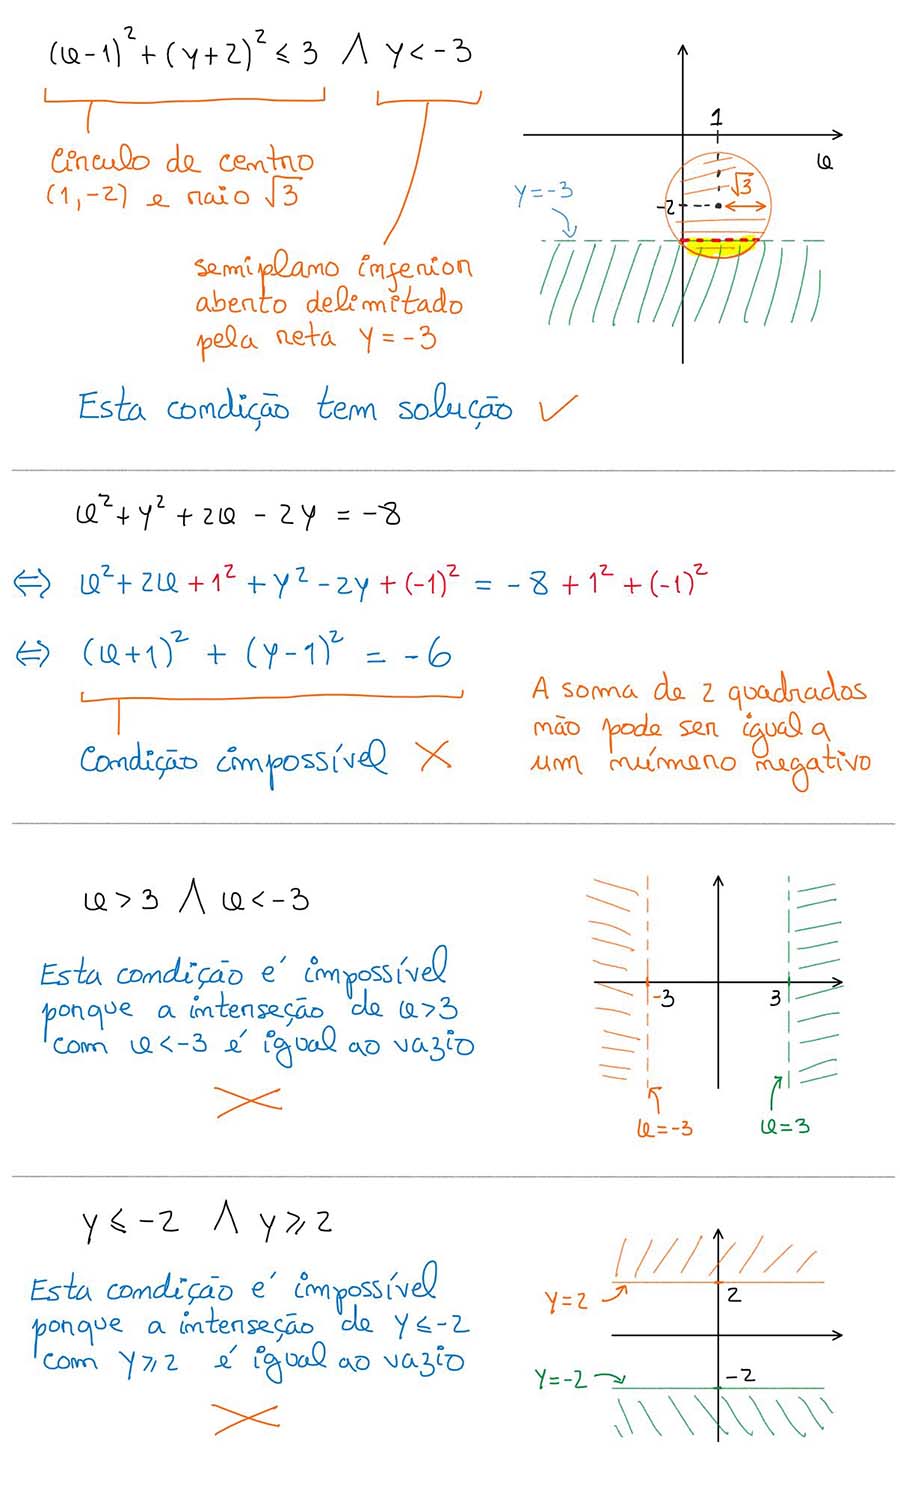 (x-1)² + (y+2)² ≤ 3 ∧ y < -3
Círculo de centro
(1,-2) e raio √3
semiplano inferior
aberto delimitado
pela reta y = -3
1
x
y=-3
√3
-2
Esta condição tem solução ✓
x² + y² + 2x - 2y = -8
⇔ x² + 2x + 1² + y² - 2y + (-1)² = -8 + 1² + (-1)²
⇔ (x+1)² + (y-1)² = -6
Condição impossível ×
A soma de 2 quadrados
não pode ser igual a
um número negativo
x > 3 ∧ x < -3
Esta condição é impossível
porque a interseção de x>3
com x<-3 é igual ao vazio
×
-3
3
x=-3
x=3
y ≤ -2 ∧ y ⩾ 2
Esta condição é impossível
porque a interseção de y ≤ -2
com y ⩾ 2 é igual ao vazio
×
y=2
2
y=-2
-2